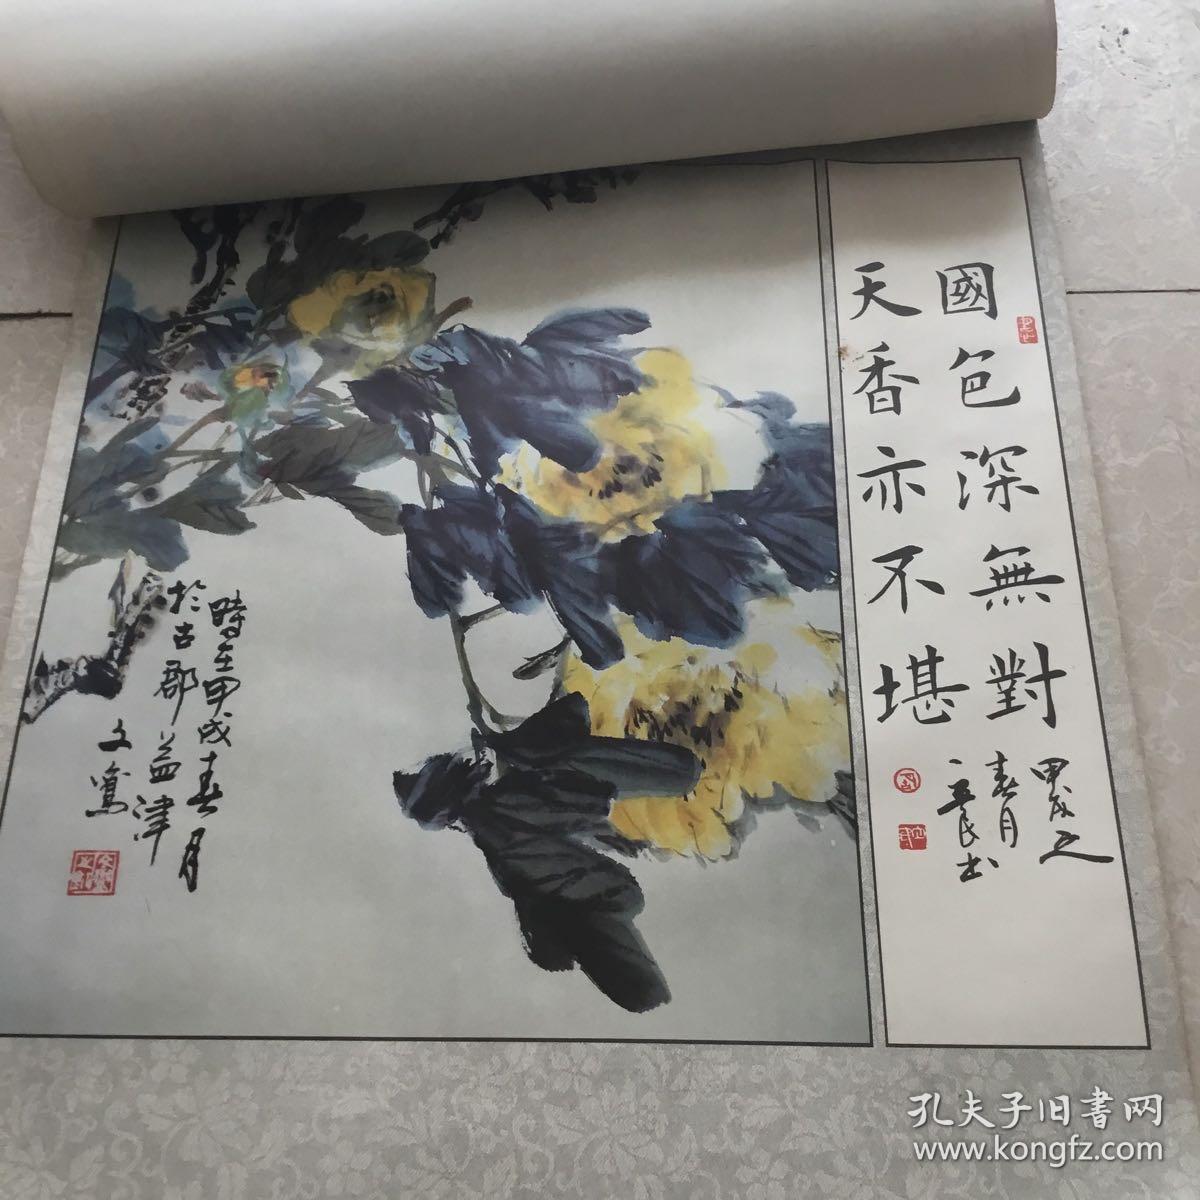 國色深無對
天香亦不堪
甲戌之
春月
立民书
時在甲戌春月
於古郡益津
文鸾
孔夫子旧書网
www.kongfz.com